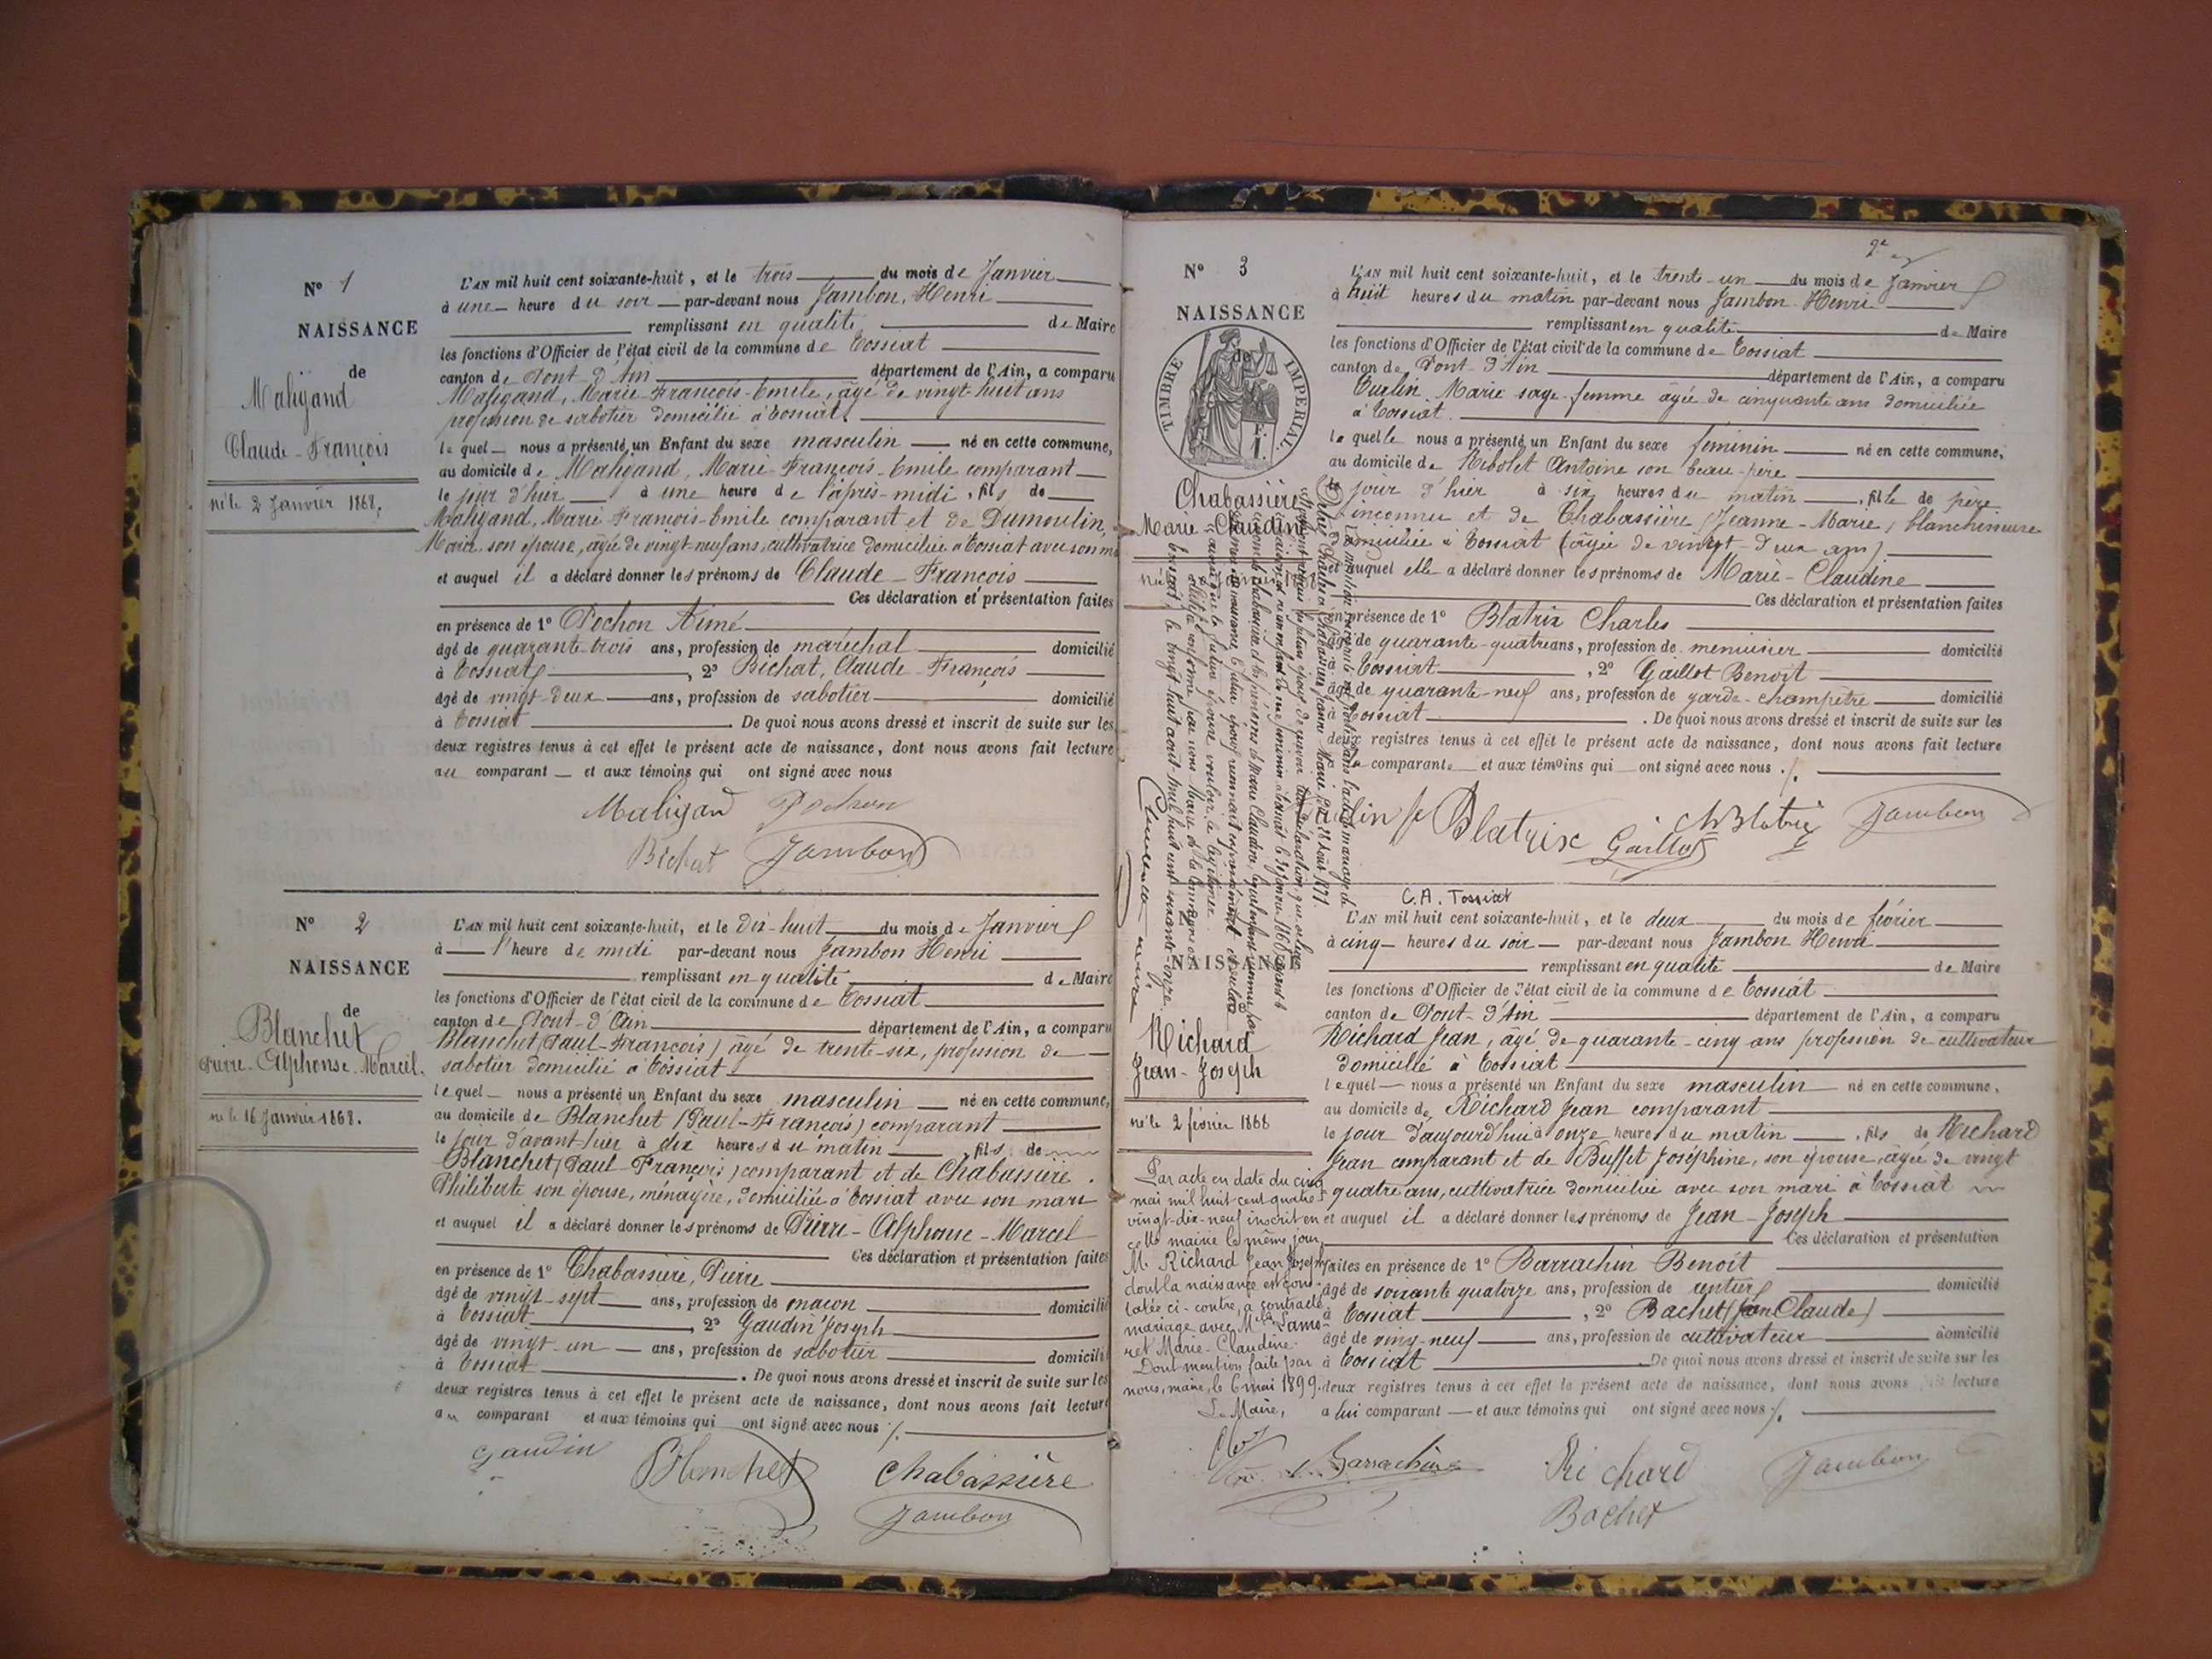 N° 1
NAISSANCE
de
Maligand
Claude-François
né le 2 Janvier 1868.
L'AN mil huit cent soixante-huit, et le trois du mois de Janvier
à une heure du soir par-devant nous Jambon, Henri
remplissant en qualité de Maire
les fonctions d'Officier de l'état civil de la commune de Tossiat
canton de Pont-d'Ain département de l'Ain, a comparu
Maligand, Marie-François-Emile, âgé de vingt-huit ans
profession de sabotier domicilié à Tossiat.
le quel nous a présenté un Enfant du sexe masculin né en cette commune,
au domicile de Maligand, Marie-François-Emile comparant
le jour d'hier à une heure de l'après-midi, fils de
Maligand, Marie-François-Emile comparant et de Dumoulin,
Marie, son épouse, âgée de vingt-neuf ans, cultivatrice domiciliée à Tossiat avec son
et auquel il a déclaré donner les prénoms de Claude-François
Ces déclaration et présentation faites
en présence de 1° Pochon Aimé
âgé de quarante-trois ans, profession de maréchal domicilié
à Tossiat, 2° Bichat, Claude-François
âgé de vingt-deux ans, profession de sabotier domicilié
à Tossiat. De quoi nous avons dressé et inscrit de suite sur les
deux registres tenus à cet effet le présent acte de naissance, dont nous avons fait lecture
au comparant et aux témoins qui ont signé avec nous
Maligand Pochon
Bichat Jambon
N° 2
NAISSANCE
de
Blanchet
Pierre-Alphonse-Marcel.
né le 16 Janvier 1868.
L'AN mil huit cent soixante-huit, et le Dix-huit du mois de Janvier
à l'heure de midi par-devant nous Jambon Henri
remplissant en qualité de Maire
les fonctions d'Officier de l'état civil de la commune de Tossiat
canton de Pont-d'Ain département de l'Ain, a comparu
Blanchet (Paul-François) âgé de trente-six, profession de
sabotier domicilié à Tossiat
le quel nous a présenté un Enfant du sexe masculin né en cette commune,
au domicile de Blanchet (Paul-François) comparant
le jour d'avant-hier à dix heures du matin, fils de
Blanchet (Paul-François) comparant et de Chabassière
Philiberte son épouse, ménagère, domiciliée à Tossiat avec son mari
et auquel il a déclaré donner les prénoms de Pierre-Alphonse-Marcel
Ces déclaration et présentation faites
en présence de 1° Chabassière, Pierre
âgé de vingt-sept ans, profession de maçon domicilié
à Tossiat, 2° Gaudin Joseph
âgé de vingt-un ans, profession de sabotier domicilié
à Tossiat. De quoi nous avons dressé et inscrit de suite sur les
deux registres tenus à cet effet le présent acte de naissance, dont nous avons fait lecture
au comparant et aux témoins qui ont signé avec nous ./.
Gaudin Blanchet Chabassière
Jambon
N° 3
NAISSANCE
de
TIMBRE IMPERIAL.
Chabassière
Marie-Claudine
L'AN mil huit cent soixante-huit, et le trente-un du mois de Janvier
à huit heures du matin par-devant nous Jambon Henri
remplissant en qualité de Maire
les fonctions d'Officier de l'état civil de la commune de Tossiat
canton de Pont-d'Ain département de l'Ain, a comparu
Marie sage-femme âgée de cinquante ans domiciliée
à Tossiat.
la quelle nous a présenté un Enfant du sexe féminin né en cette commune,
au domicile de Ribolet Antoine son beau-père
le jour d'hier à six heures du matin, fille de père
inconnu et de Chabassière (Jeanne-Marie) blanchisseuse
domiciliée à Tossiat (âgée de vingt-deux ans)
et auquel elle a déclaré donner les prénoms de Marie-Claudine
Ces déclaration et présentation faites
en présence de 1° Blatrix Charles
âgé de quarante-quatre ans, profession de menuisier domicilié
à Tossiat, 2° Gaillot Benoît
âgé de quarante-neuf ans, profession de garde-champêtre domicilié
à Tossiat. De quoi nous avons dressé et inscrit de suite sur les
deux registres tenus à cet effet le présent acte de naissance, dont nous avons fait lecture
comparante et aux témoins qui ont signé avec nous ./.
Blatrix Gaillot Jambon
C.A. Tossiat
N°
NAISSANCE
Richard
Jean-Joseph
né le 2 février 1868
L'AN mil huit cent soixante-huit, et le deux du mois de février
à cinq heures du soir par-devant nous Jambon Henri
remplissant en qualité de Maire
les fonctions d'Officier de l'état civil de la commune de Tossiat
canton de Pont-d'Ain département de l'Ain, a comparu
Richard Jean, âgé de quarante-cinq ans profession de cultivateur
domicilié à Tossiat
lequel nous a présenté un Enfant du sexe masculin né en cette commune,
au domicile de Richard Jean comparant
le jour d'aujourd'hui à onze heures du matin, fils de Richard
Jean comparant et de Buffet Joséphine, son épouse, âgée de vingt
quatre ans, cultivatrice domiciliée avec son mari à Tossiat
et auquel il a déclaré donner les prénoms de Jean-Joseph
Ces déclaration et présentation
faites en présence de 1° Barrachin Benoît
âgé de soixante quatorze ans, profession de rentier domicilié
à Tossiat, 2° Bachet (Jean Claude)
âgé de vingt-neuf ans, profession de cultivateur domicilié
à Tossiat De quoi nous avons dressé et inscrit de suite sur les
deux registres tenus à cet effet le présent acte de naissance, dont nous avons fait lecture
a lui comparant et aux témoins qui ont signé avec nous ./.
Par acte en date du cinq
mai mil huit-cent-quatre-
vingt-dix-neuf inscrit en
cette mairie le même jour,
M. Richard Jean Joseph
dont la naissance est cons-
tatée ci-contre, a contracté
mariage avec Mlle Famo-
ret Marie-Claudine.
Dont mention faite par
nous, maire, le 6 mai 1899.
Le Maire,
Barrachin Richard Jambon
Bachet